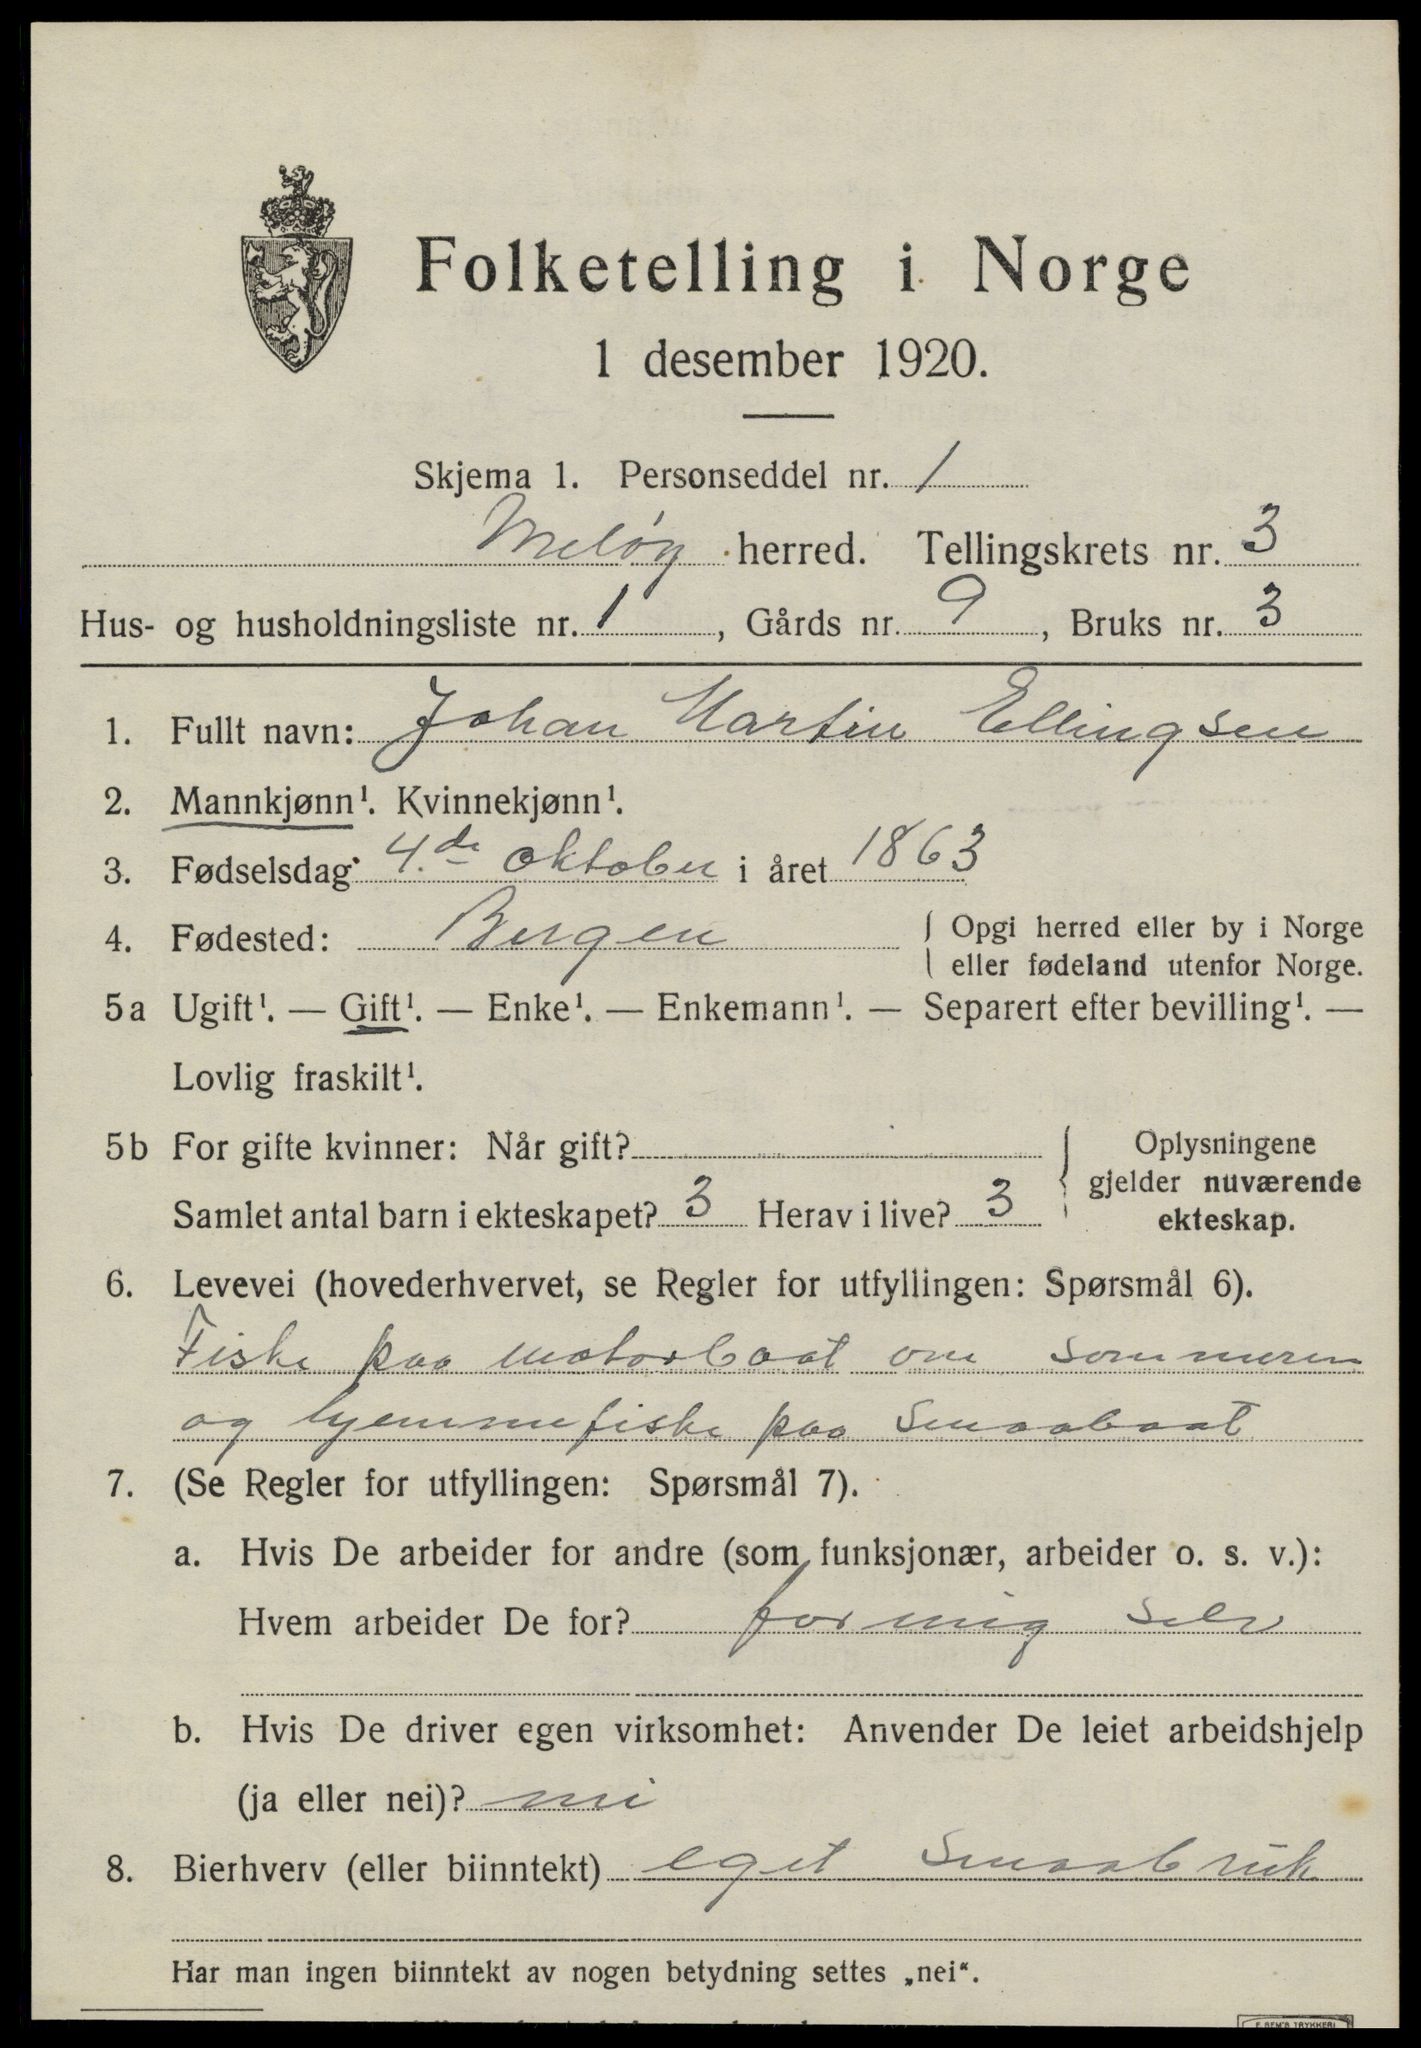 Folketelling i Norge
1 desember 1920.
Skjema 1. Personseddel nr. 1
Meløy herred. Tellingskrets nr. 3
Hus- og husholdningsliste nr. 1, Gårds nr. 9, Bruks nr. 3
1. Fullt navn: Johan Martin Ellingsen
2. Mannkjønn¹. Kvinnekjønn¹.
3. Fødselsdag 4.de oktober i året 1863
4. Fødested: Bergen { Opgi herred eller by i Norge
eller fødeland utenfor Norge.
5a Ugift¹. — Gift¹. — Enke¹. — Enkemann¹. — Separert efter bevilling¹. —
Lovlig fraskilt¹.
5b For gifte kvinner: Når gift?
Samlet antal barn i ekteskapet? 3 Herav i live? 3
{ Oplysningene
gjelder nuværende
ekteskap.
6. Levevei (hovederhvervet, se Regler for utfyllingen: Spørsmål 6).
Fiske paa motorbaat om sommeren
og hjemmefiske paa smaabaat
7. (Se Regler for utfyllingen: Spørsmål 7).
a. Hvis De arbeider for andre (som funksjonær, arbeider o. s. v.):
Hvem arbeider De for? for mig selv
b. Hvis De driver egen virksomhet: Anvender De leiet arbeidshjelp
(ja eller nei)? nei
8. Bierhverv (eller biinntekt) eget smaabruk
Har man ingen biinntekt av nogen betydning settes „nei“.